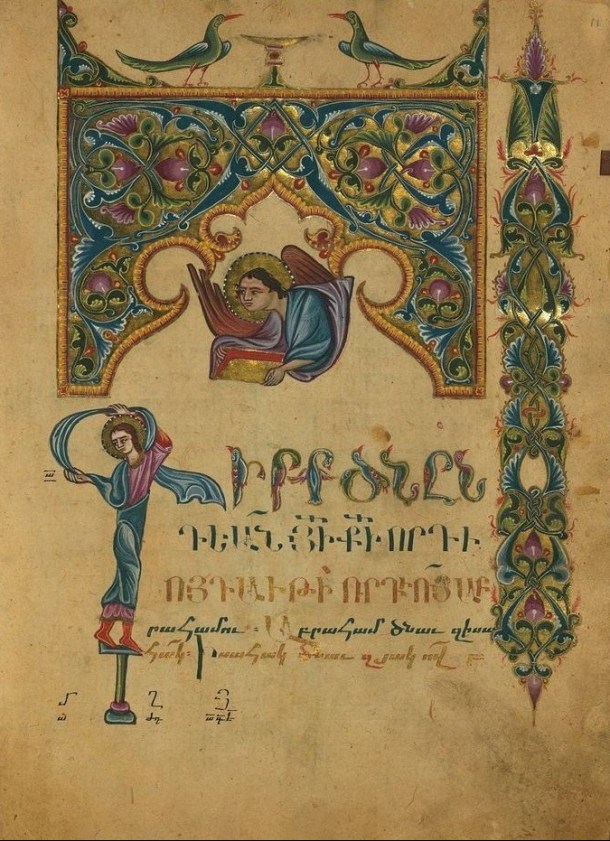 ԳԻՐՔ ԾՆԸՆ
ԴԵԱՆ ՅԻ ՔԻ ՈՐԴԻ
ՈՅ ԴԱՒԻԹԻ ՈՐԴՈՅ ԱԲ
րահամու : Աբրահամ ծնաւ զիսա
հակ: իսահակ ծնաւ զյակովբ